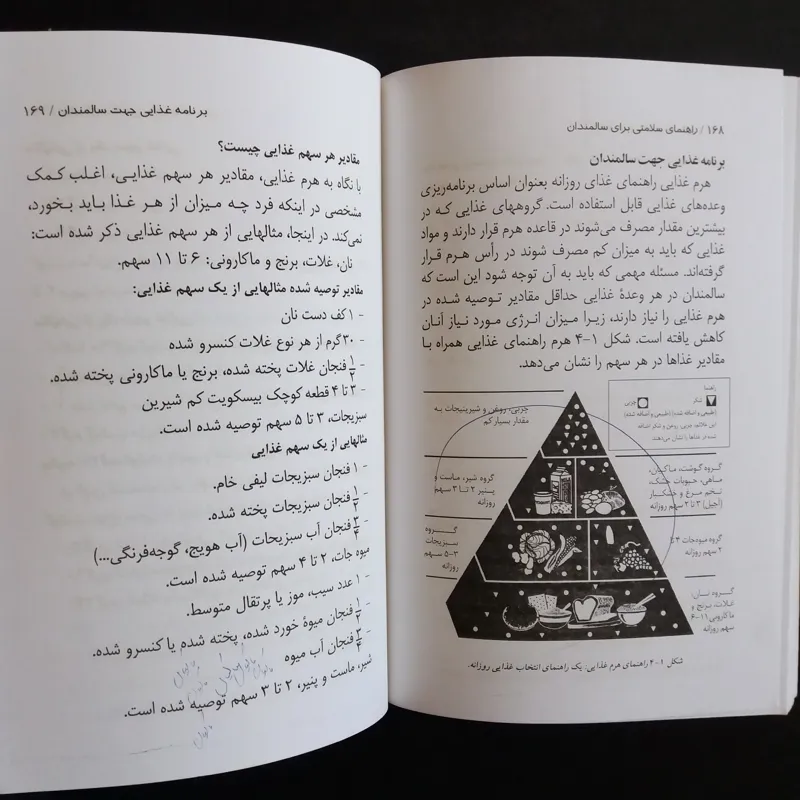 ۱۶۸ / راهنمای سلامتی برای سالمندان
برنامه غذایی جهت سالمندان
هرم غذایی راهنمای غذای روزانه بعنوان اساس برنامه‌ریزی
وعده‌های غذایی قابل استفاده است. گروههای غذایی که در
بیشترین مقدار مصرف می‌شوند در قاعده هرم قرار دارند و مواد
غذایی که باید به میزان کم مصرف شوند در رأس هرم قرار
گرفته‌اند. مسئله مهمی که باید به آن توجه شود این است که
سالمندان در هر وعدهٔ غذایی حداقل مقادیر توصیه شده در
هرم غذایی را نیاز دارند، زیرا میزان انرژی مورد نیاز آنان
کاهش یافته است. شکل ۱-۴ هرم راهنمای غذایی همراه با
مقادیر غذاها در هر سهم را نشان می‌دهد.
راهنما
چربی
شکر
(طبیعی و اضافه شده)
(طبیعی و اضافه شده)
این علائم، چربی، روغن و شکر اضافه
شده در غذاها را نشان می‌دهند
چربی، روغن و شیرینیجات به
مقدار بسیار کم
گروه شیر، ماست و
پنیر ۲ تا ۳ سهم
روزانه
گروه گوشت، ماکیان،
ماهی، حبوبات خشک،
تخم مرغ و خشکبار
(آجیل) ۲ تا ۳ سهم روزانه
گروه
سبزیجات
۳-۵ سهم
روزانه
گروه میوه‌جات ۴ تا
۲ سهم روزانه
گروه نان،
غلات، برنج و
ماکارونی ۱۱-۶
سهم روزانه
شکل ۱-۴ راهنمای هرم غذایی: یک راهنمای انتخاب غذایی روزانه.
برنامه غذایی جهت سالمندان / ۱۶۹
مقادیر هر سهم غذایی چیست؟
با نگاه به هرم غذایی، مقادیر هر سهم غذایی، اغلب کمک
مشخصی در اینکه فرد چه میزان از هر غذا باید بخورد،
نمی‌کند. در اینجا، مثالهایی از هر سهم غذایی ذکر شده است:
نان، غلات، برنج و ماکارونی: ۶ تا ۱۱ سهم.
مقادیر توصیه شده مثالهایی از یک سهم غذایی:
- ۱ کف دست نان
- ۳۰ گرم از هر نوع غلات کنسرو شده
- ۱/۲ فنجان غلات پخته شده، برنج یا ماکارونی پخته شده.
- ۳ تا ۴ قطعه کوچک بیسکویت کم شیرین
سبزیجات، ۳ تا ۵ سهم توصیه شده است.
مثالهایی از یک سهم غذایی
- ۱ فنجان سبزیجات لیفی خام.
- ۱/۲ فنجان سبزیجات پخته شده.
- ۳/۴ فنجان آب سبزیجات (آب هویج، گوجه‌فرنگی...)
میوه جات، ۲ تا ۴ سهم توصیه شده است.
- ۱ عدد سیب، موز یا پرتقال متوسط.
- ۱/۲ فنجان میوهٔ خورد شده، پخته شده یا کنسرو شده.
- ۳/۴ فنجان آب میوه
شیر، ماست و پنیر، ۲ تا ۳ سهم توصیه شده است.